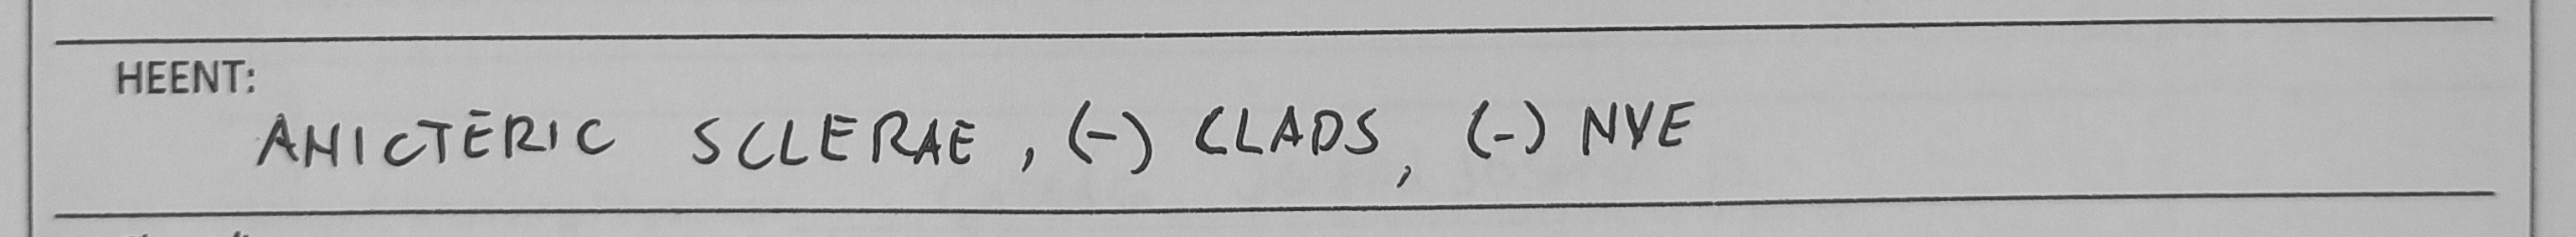 HEENT:
ANICTERIC SCLERAE, (-) CLADS, (-) NVE